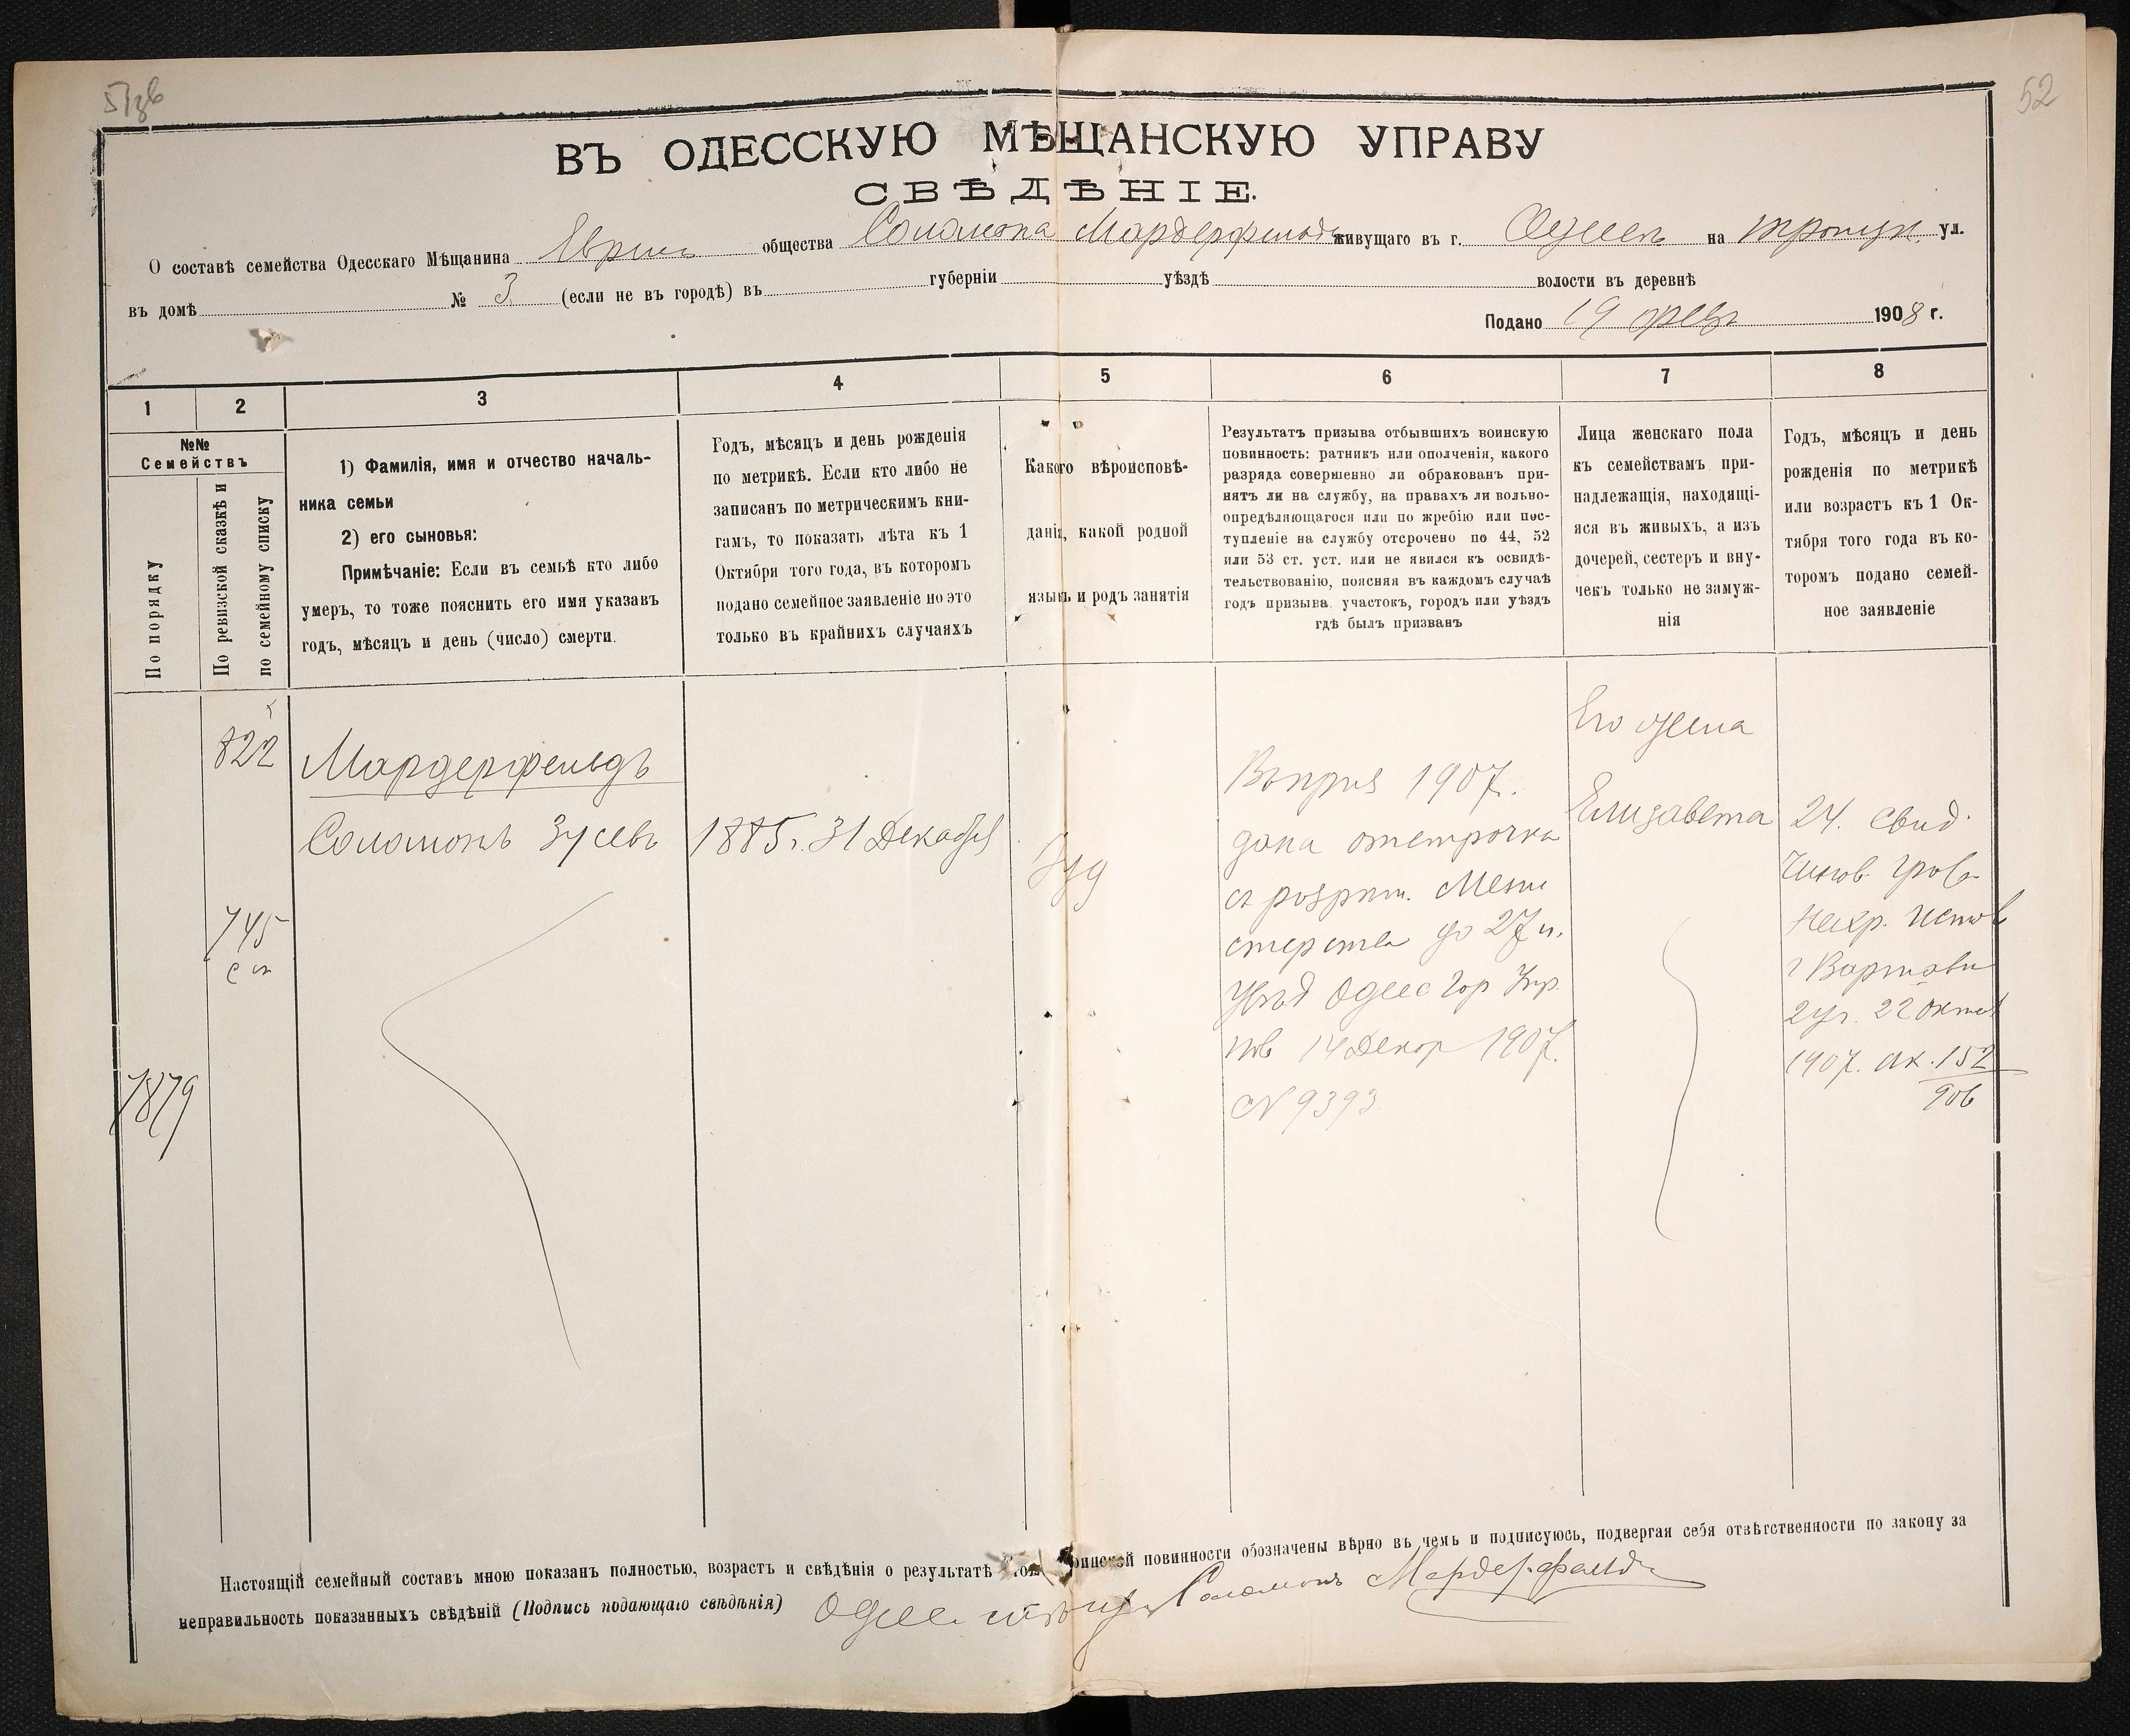 52
ВЪ ОДЕССКУЮ МѢЩАНСКУЮ УПРАВУ
СВѢДѢНІЕ.
О составѣ семейства Одесскаго Мѣщанина общества Соломона Мардерфельдъ живущаго въ г. Одессѣ на Троицк. ул.
въ домѣ № 3 (если не въ городѣ) въ губерніи уѣздѣ волости въ деревнѣ
Подано 19 февр 1908 г.
1 2 3 4 5 6 7 8
№№
Семействъ
По порядку
По ревизской сказкѣ и
по семейному списку
1) Фамилія, имя и отчество началь-
ника семьи
2) его сыновья:
Примѣчаніе: Если въ семьѣ кто либо
умеръ, то тоже пояснить его имя указавъ
годъ, мѣсяцъ и день (число) смерти.
Годъ, мѣсяцъ и день рожденія
по метрикѣ. Если кто либо не
записанъ по метрическимъ кни-
гамъ, то показать лѣта къ 1
Октября того года, въ которомъ
подано семейное заявленіе но это
только въ крайнихъ случаяхъ
Какого вѣроисповѣ-
данія, какой родной
языкъ и родъ занятія
Результатъ призыва отбывшихъ воинскую
повинность: ратникъ или ополченія, какого
разряда совершенно ли обракованъ при-
нятъ ли на службу, на правахъ ли вольно-
опредѣляющагося или по жребію или пос-
тупленіе на службу отсрочено по 44, 52
или 53 ст. уст. или не явился къ освидѣ-
тельствованію, поясняя въ каждомъ случаѣ
годъ призыва. участокъ, городъ или уѣздъ
гдѣ былъ призванъ
Лица женскаго пола
къ семействамъ при-
надлежащія, находящі-
яся въ живыхъ, а изъ
дочерей, сестеръ и вну-
чекъ только не замуж-
нія
Годъ, мѣсяцъ и день
рожденія по метрикѣ
или возрастъ къ 1 Ок-
тября того года въ ко-
торомъ подано семей-
ное заявленіе
822
Мардерфельдъ
Соломонъ Зусевъ
1885 г. 31 Декабря
745
7879
Іуд
Въ приз 1907 г.
дана отстрочка
съ разрѣш. Мини
стерства до 27 л.
Увѣд Одес Гор Упр.
14 Декабр 1907 г.
№ 9393
Его жена
Елизавета
24. Свид.
Чинов. Гров.
Нехр. Испов
г Варшавы
2 уч. 22 Октяб
1907. ак. 152
906
Настоящій семейный составъ мною показанъ полностью, возрастъ и свѣдѣнія о результатѣ воинской повинности обозначены вѣрно въ чемъ и подписуюсь, подвергая себя отвѣтственности по закону за
неправильность показанныхъ свѣдѣній (Подпись подающаго свѣдѣнія) Одесс. Соломонъ Мардерфельдъ